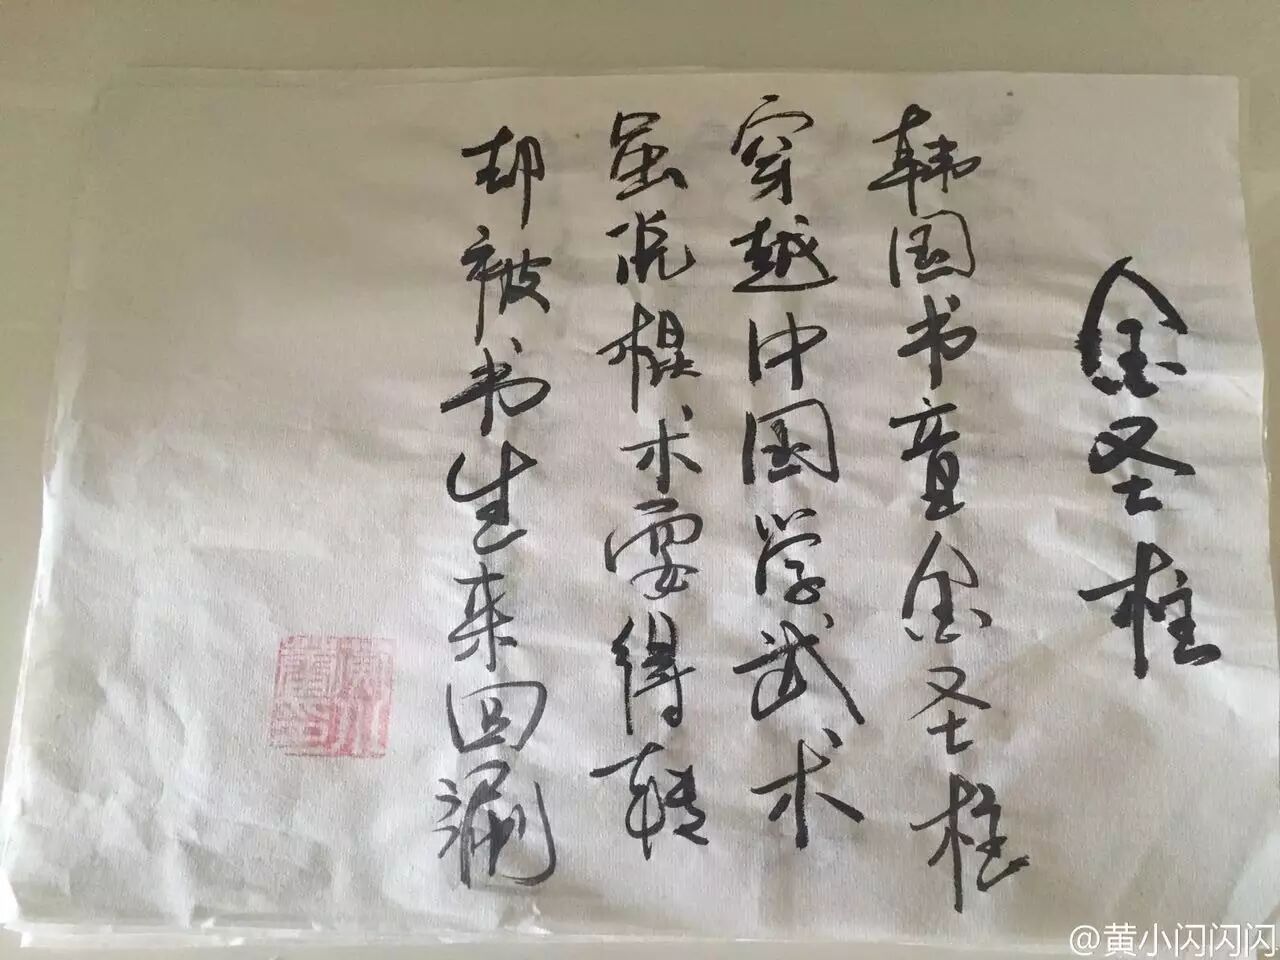 金圣柱
韩国书童金圣柱
穿越中国学武术
虽说棍术耍得转
却被书生来回涮
@黄小闪闪闪